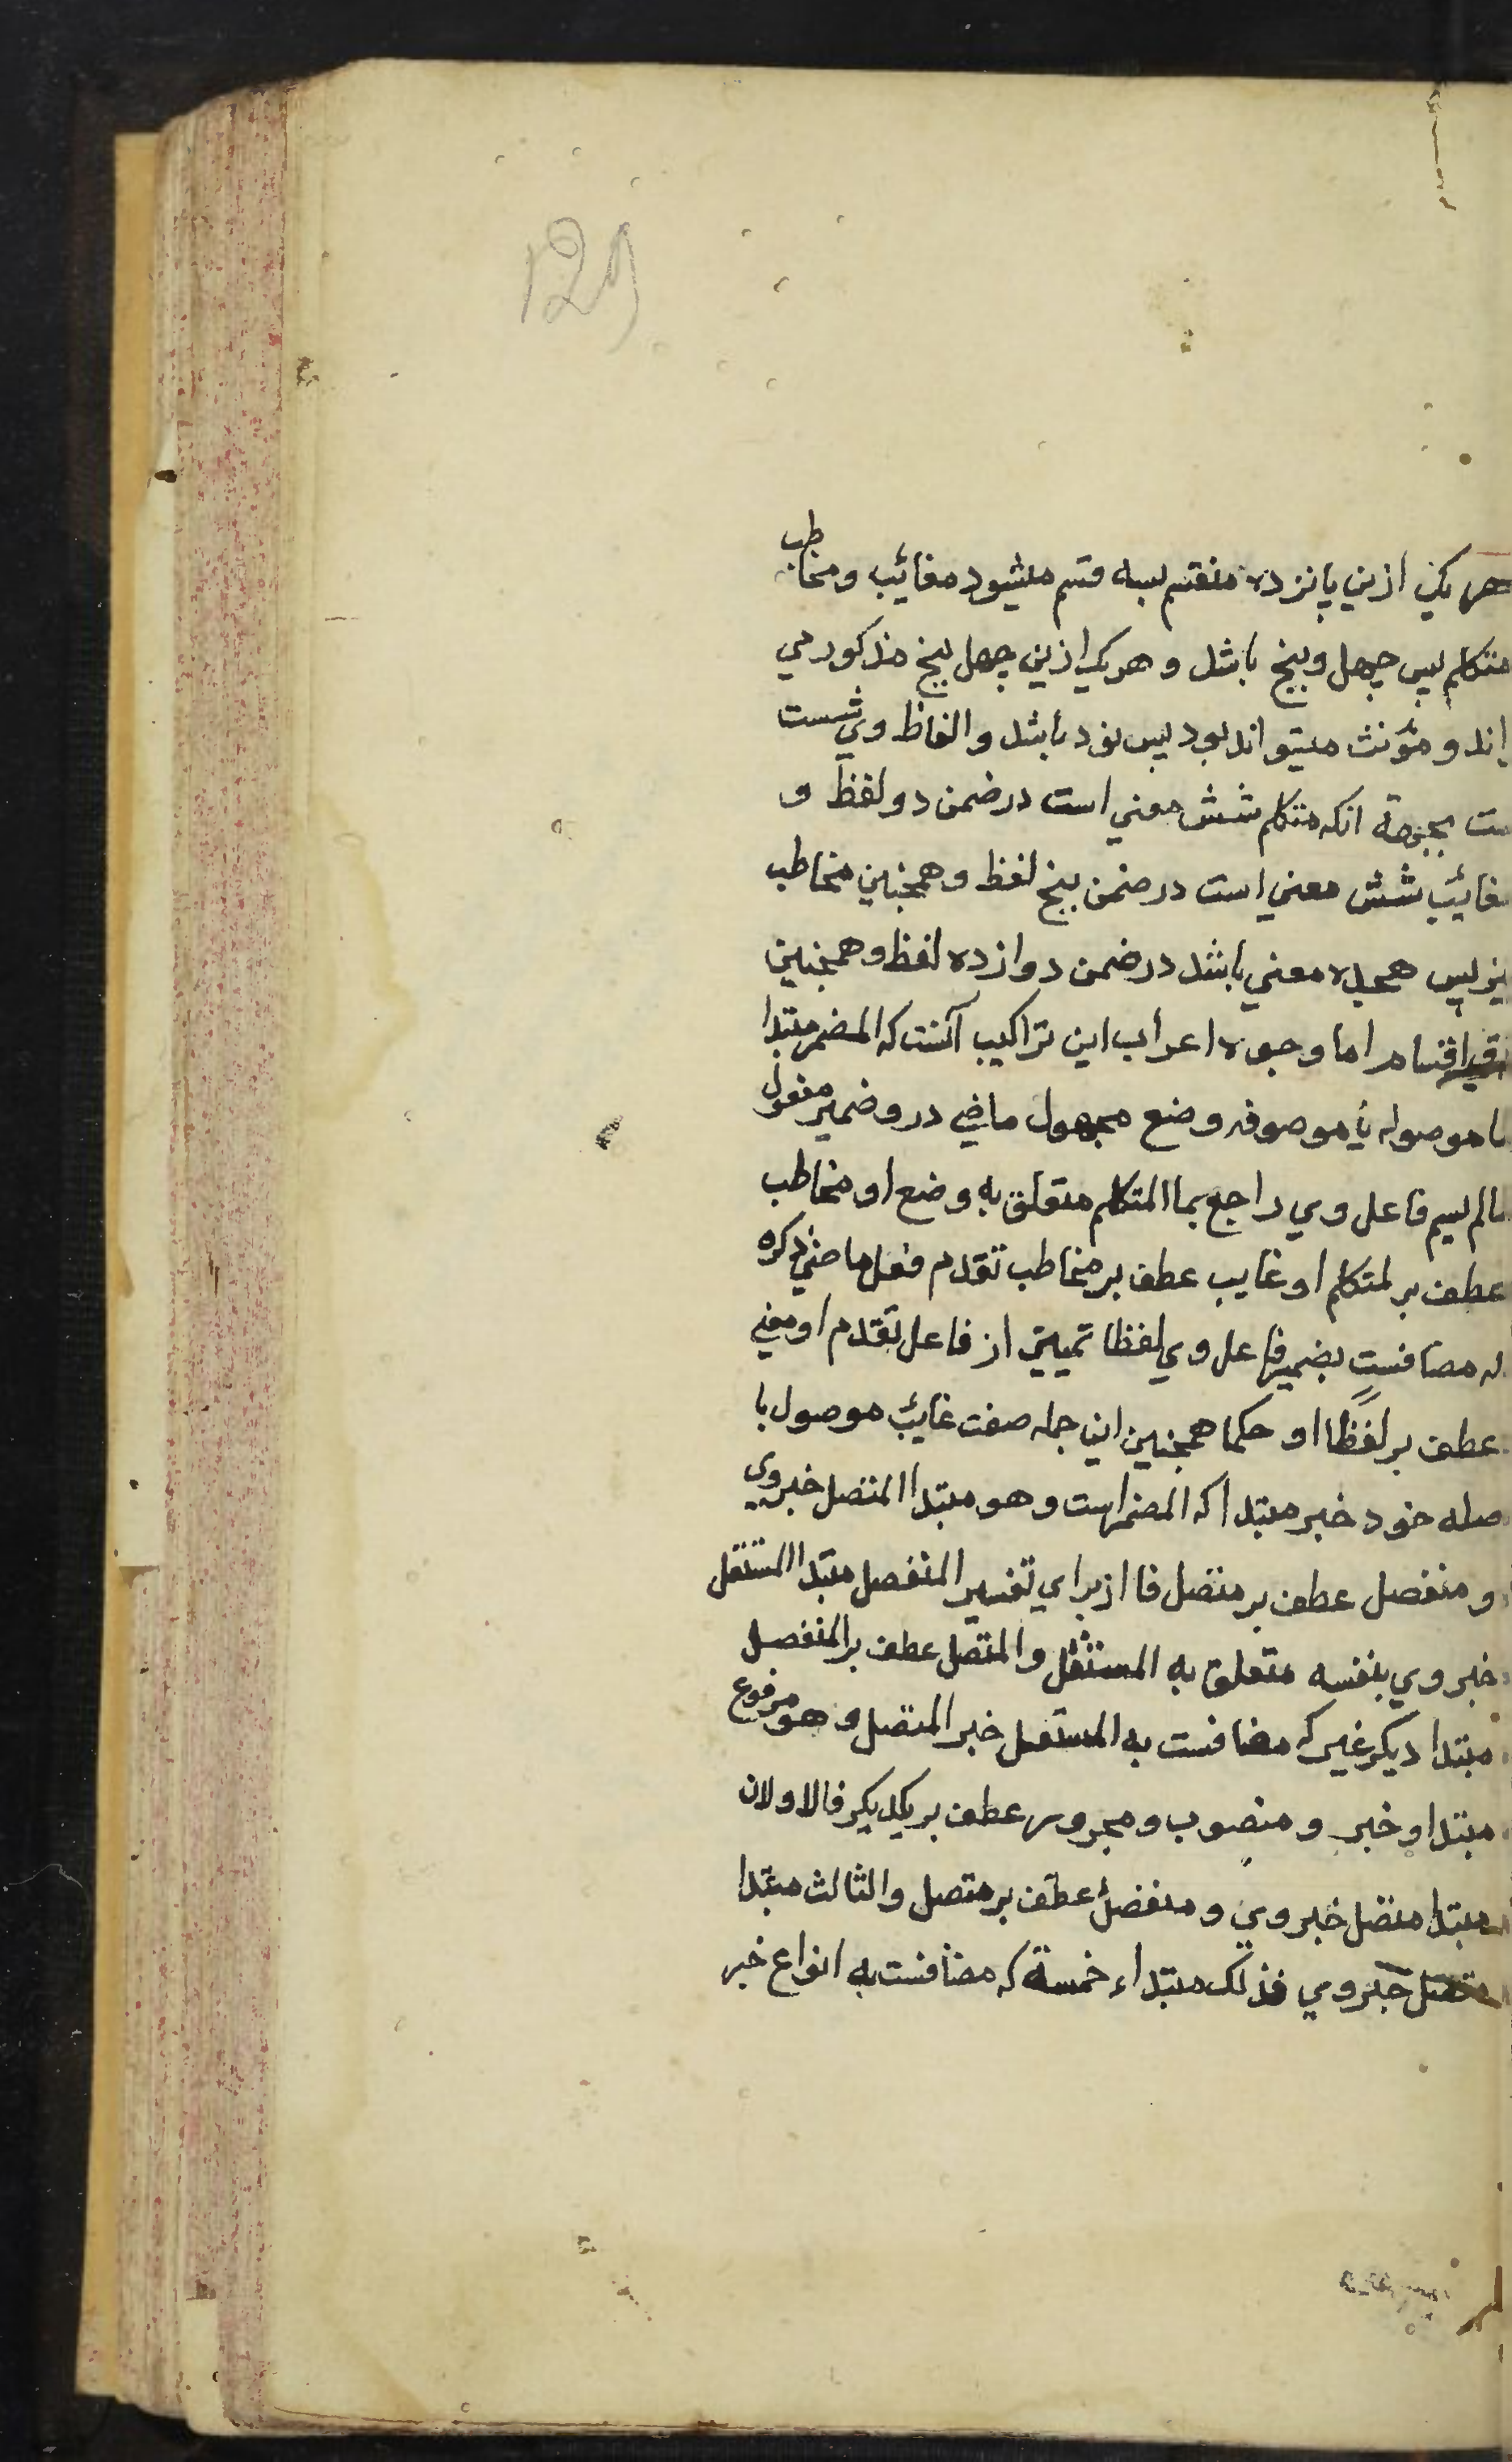 129
هریک ازین پانزده منقسم بسه قسم میشود مغائب ومخاطب
متکلم پس چهل وپنج باشد و هریک ازین چهل پنج مذکور می
اند و مؤنث میتواند بود پس نود باشد والفاظ وی شست
ست بجهة انکه متکلم شش معنی است در ضمن دو لفظ و
مغائب شش معنی است در ضمن پنج لفظ و همچنین مخاطب
نیز پس هجده معنی باشد در ضمن دوازده لفظ و همچنین
اقسام اما وجوه اعراب این تراکیب آنست که المضمر مبتدا
ما موصوله یا موصوفه وضع مجهول ماضی درو ضمیر مفعول
مالم یسم فاعل وی راجع بما المتکلم متعلق به وضع او مخاطب
عطف بر لمتکلم او غایب عطف بر مخاطب تقدم فعل ماضی ذکره
که مضافست بضمیر فاعل وی لفظا تمییز از فاعل تقدم او معنی
عطف بر لفظًا او حکما همچنین این جمله صفت غائب موصول با
صله خود خبر مبتدا که المضمر است و هو مبتدا المتصل خبر وی
و منفصل عطف بر متصل فا از برای تفسیر المنفصل مبتدا المستقل
خبر وی بنفسه متعلق به المستقل والمتصل عطف بر المنفصل
مبتدا دیکر غیر که مضافست به المستقل خبر المتصل و هو مرفوع
مبتدا و خبر و منصوب و مجرور عطف بر یکدیکر فالاولان
مبتدا متصل خبر وی و منفصل عطف بر متصل والثالث مبتدا
متصل خبر وی فذلک مبتداء خمسة که مضافست به انواع خبر